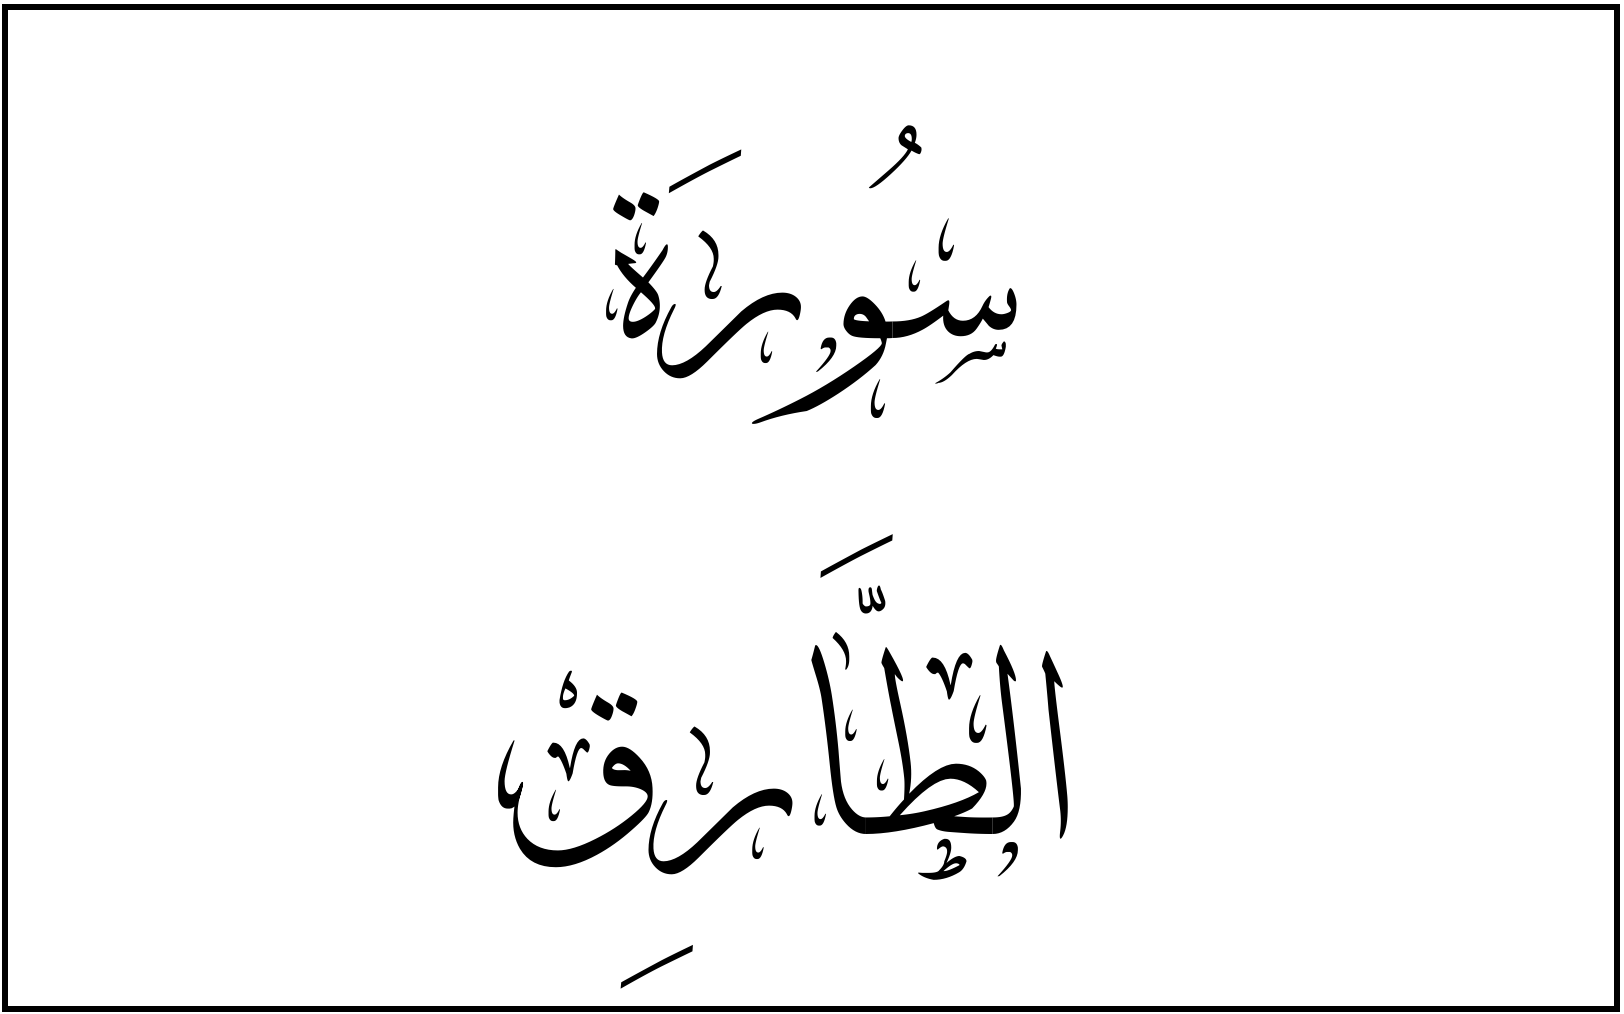 سُورَة
الطَّارِق